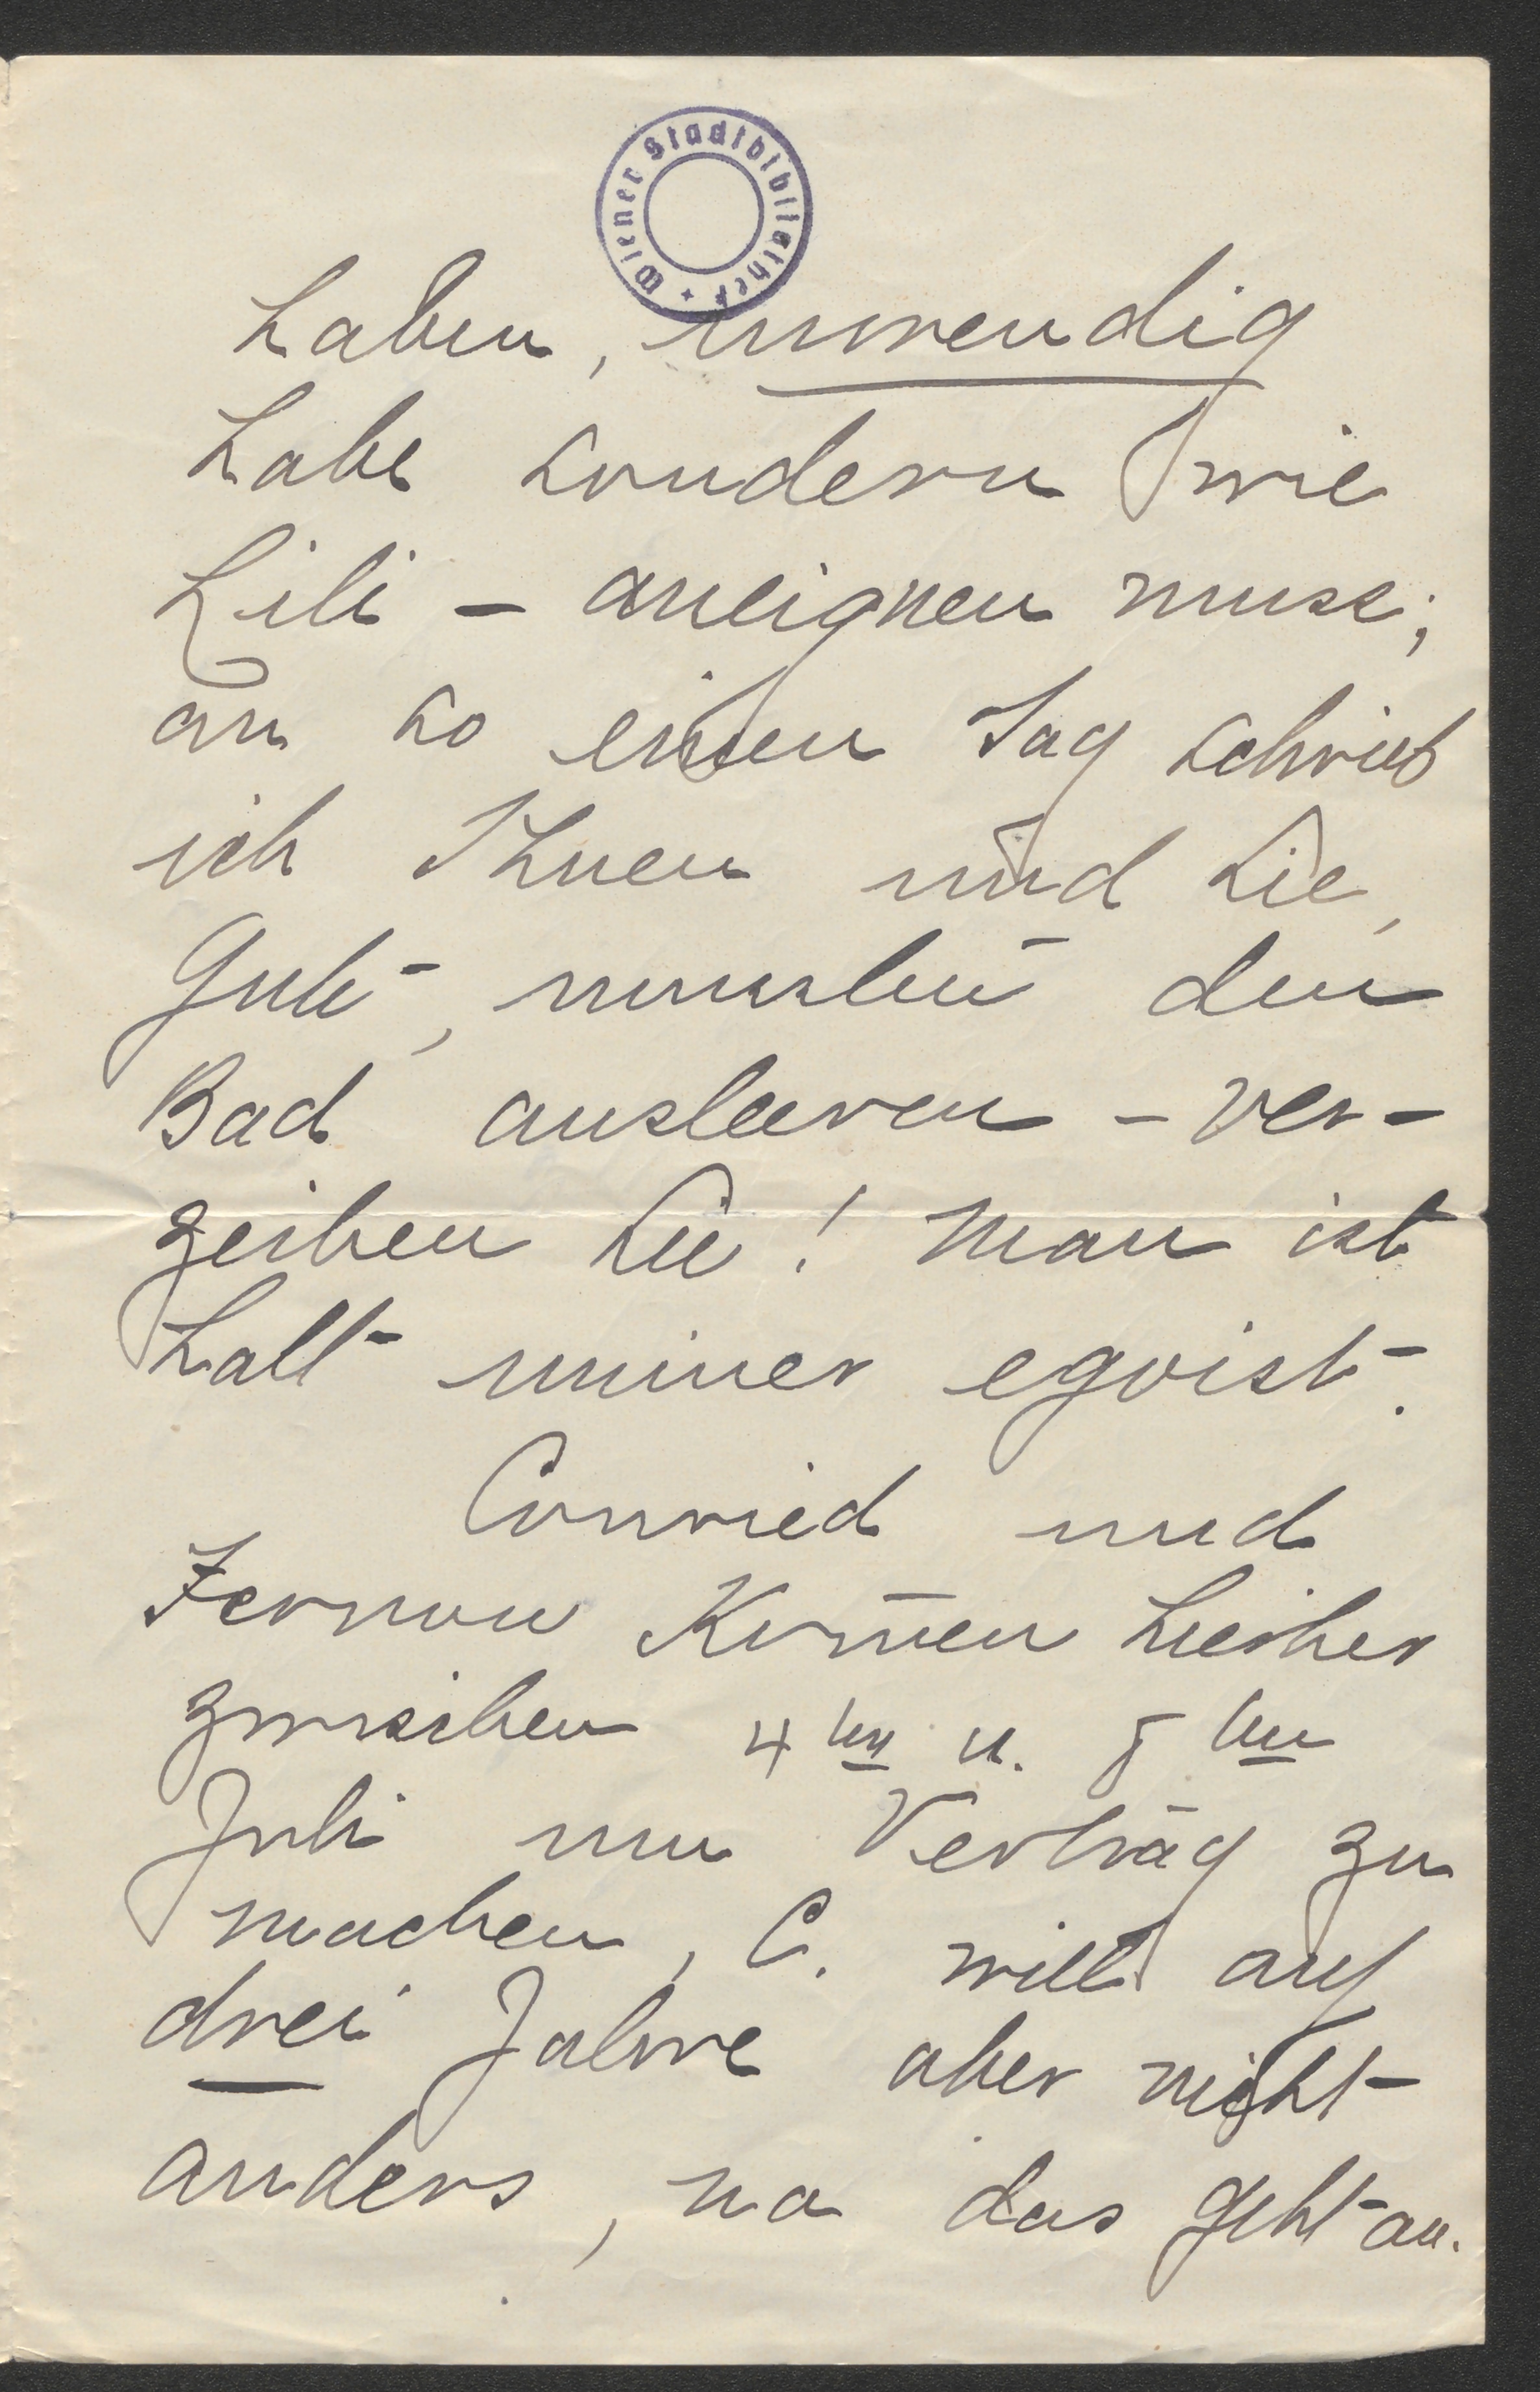 Wiener Stadtbibliothek
haben, inwendig
habe sondern wie
Lili – aneignen muss;
an so einen Tag schrieb
ich Ihnen und Sie,
Gute, mussten den
Bad ausleeren – ver-
zeihen Sie! Man ist
halt immer egoist.
Conried und
Fernow kom̄en hierher
zwischen 4ten u. 8ten
Juli um Vertrag zu
machen, C. will auf
drei Jahre aber nicht
anders, na das geht an.